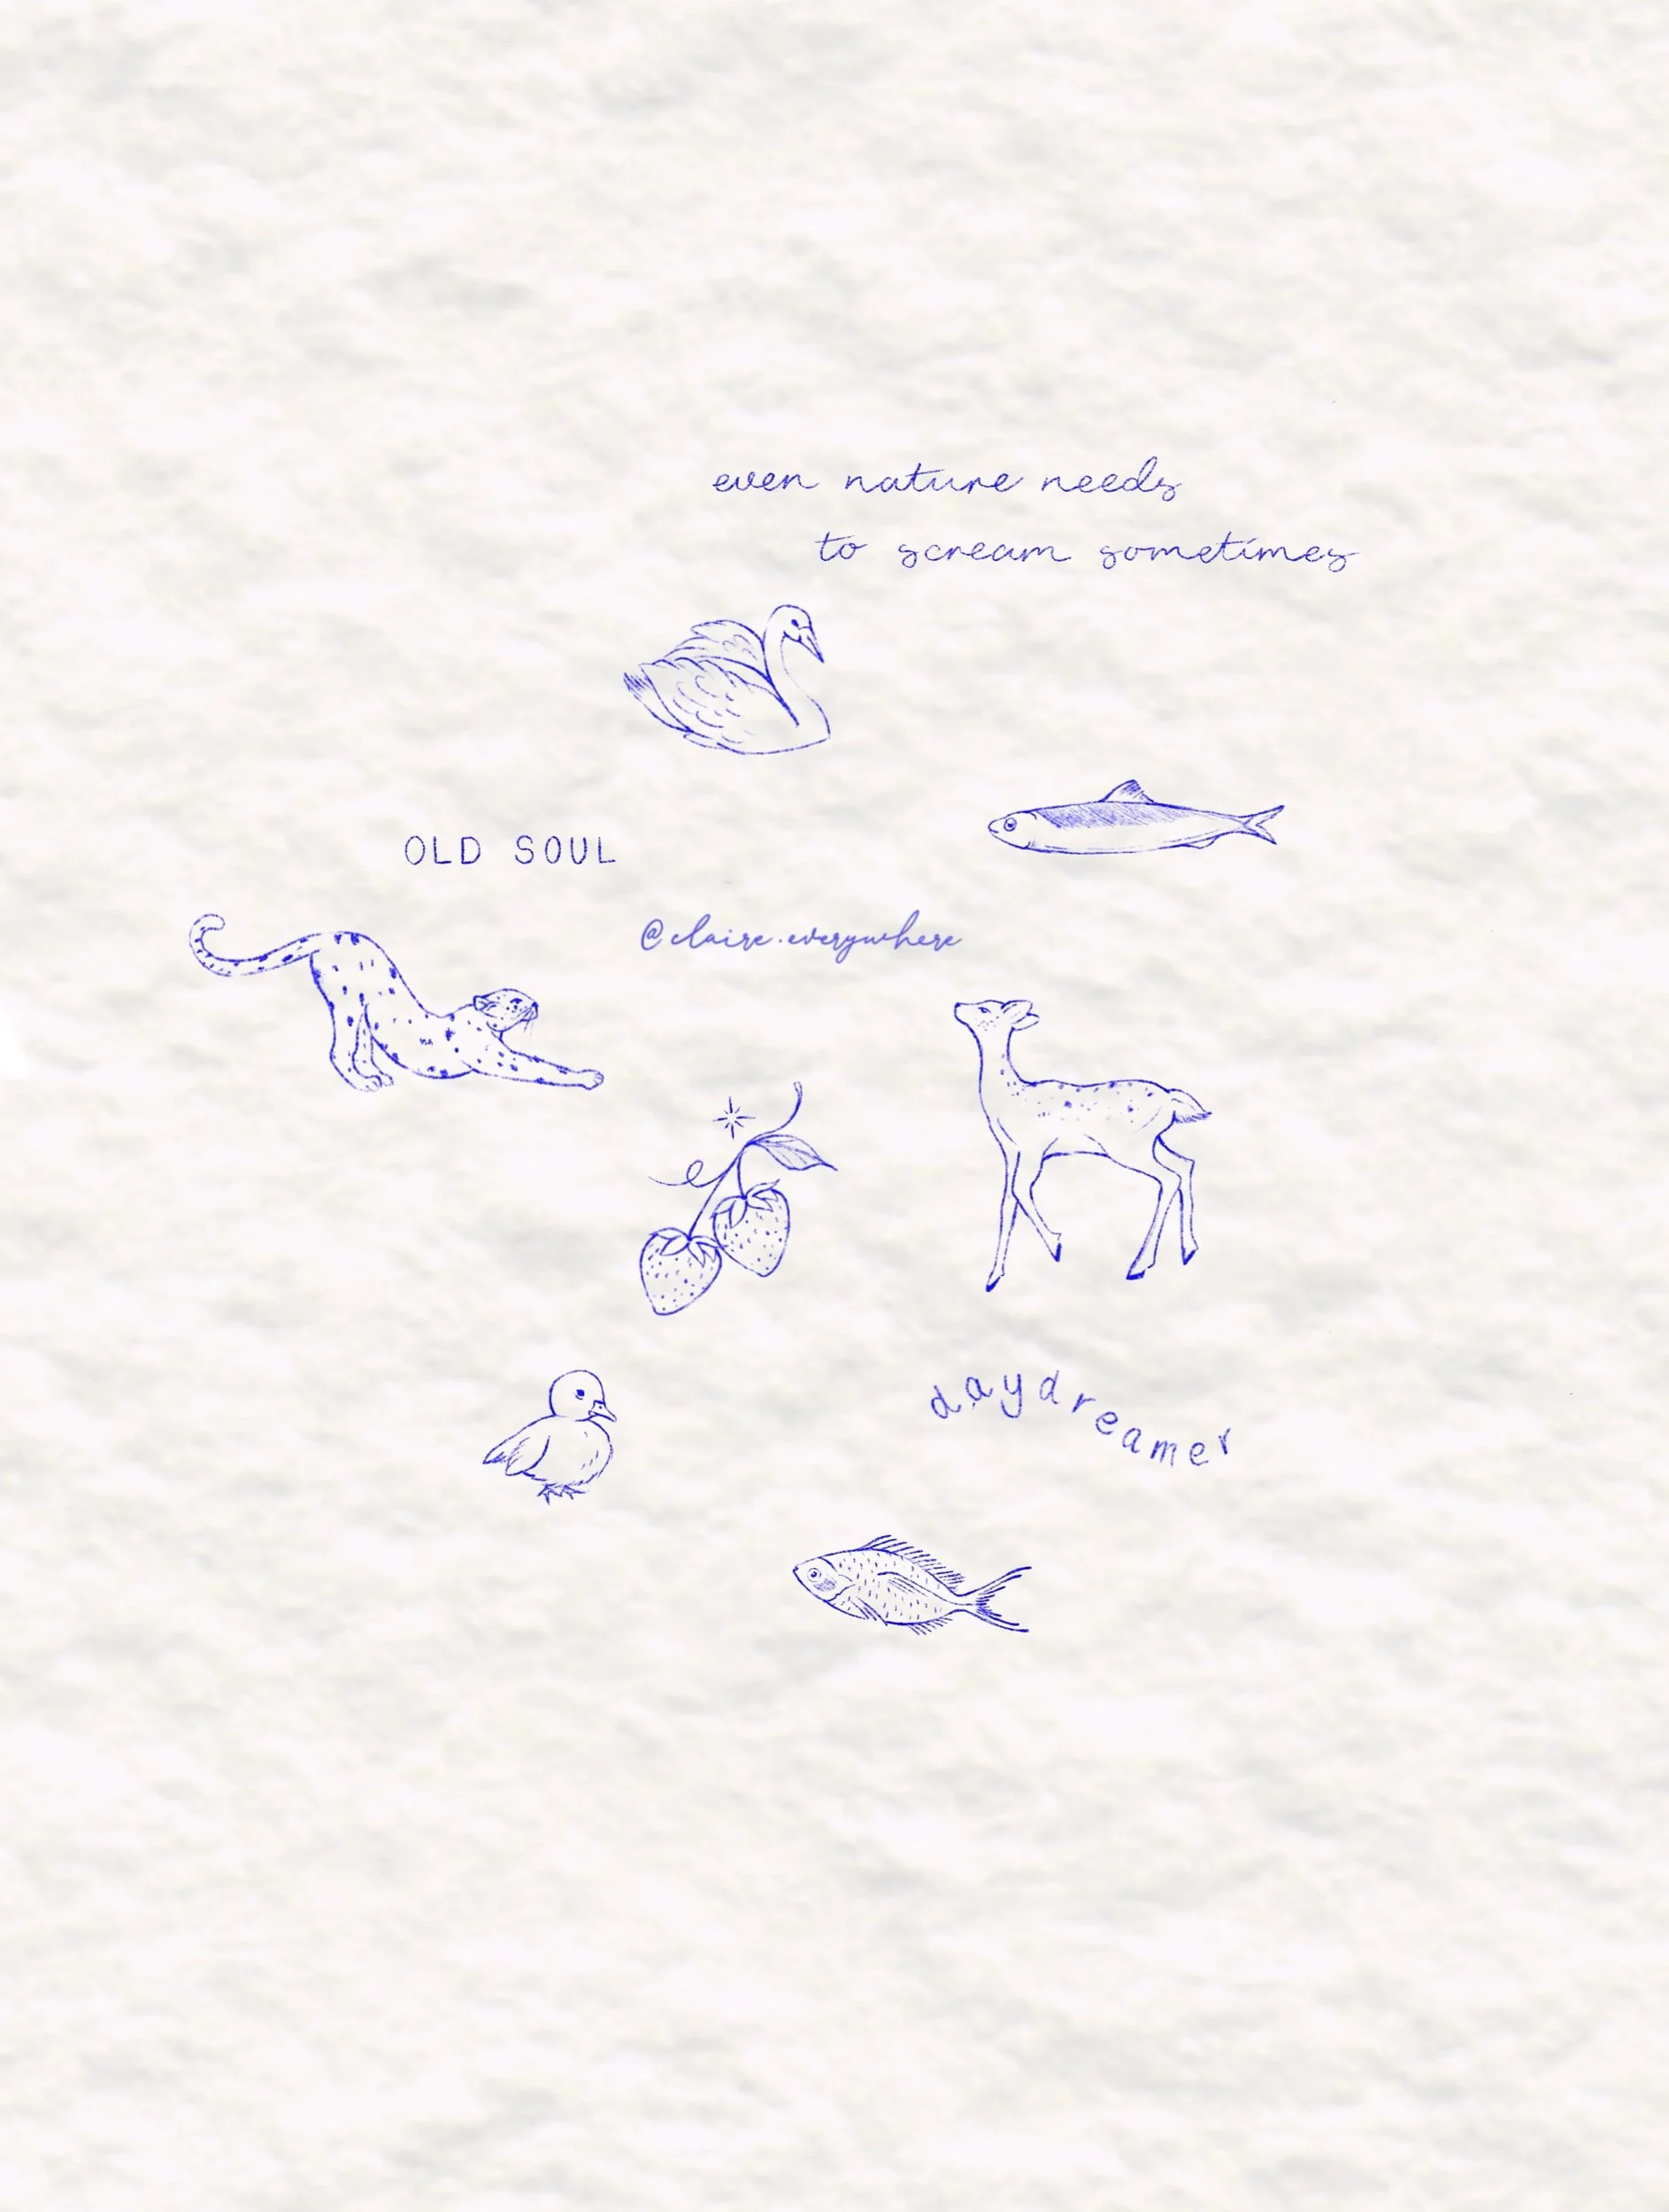 even nature needs
to scream sometimes
OLD SOUL
@claire.everywhere
daydreamer